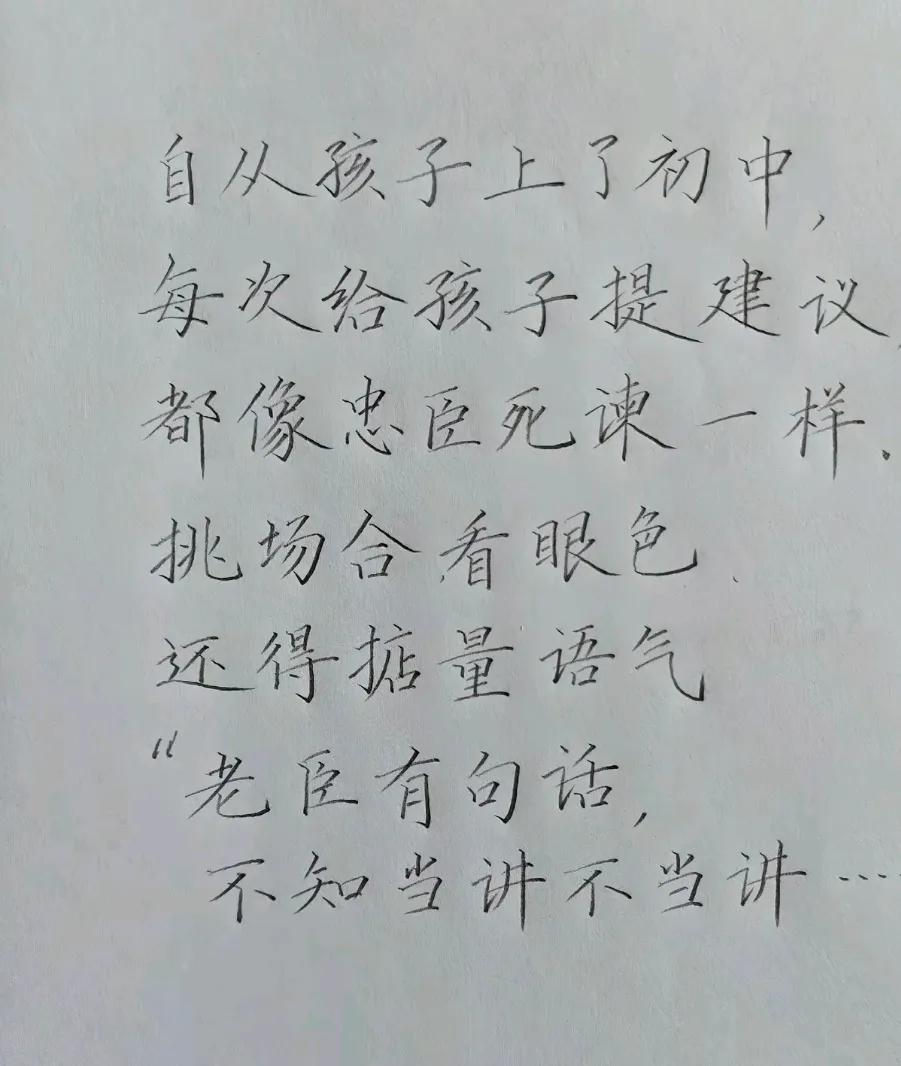 自从孩子上了初中,
每次给孩子提建议,
都像忠臣死谏一样.
挑场合看眼色.
还得掂量语气
“老臣有句话,
不知当讲不当讲……